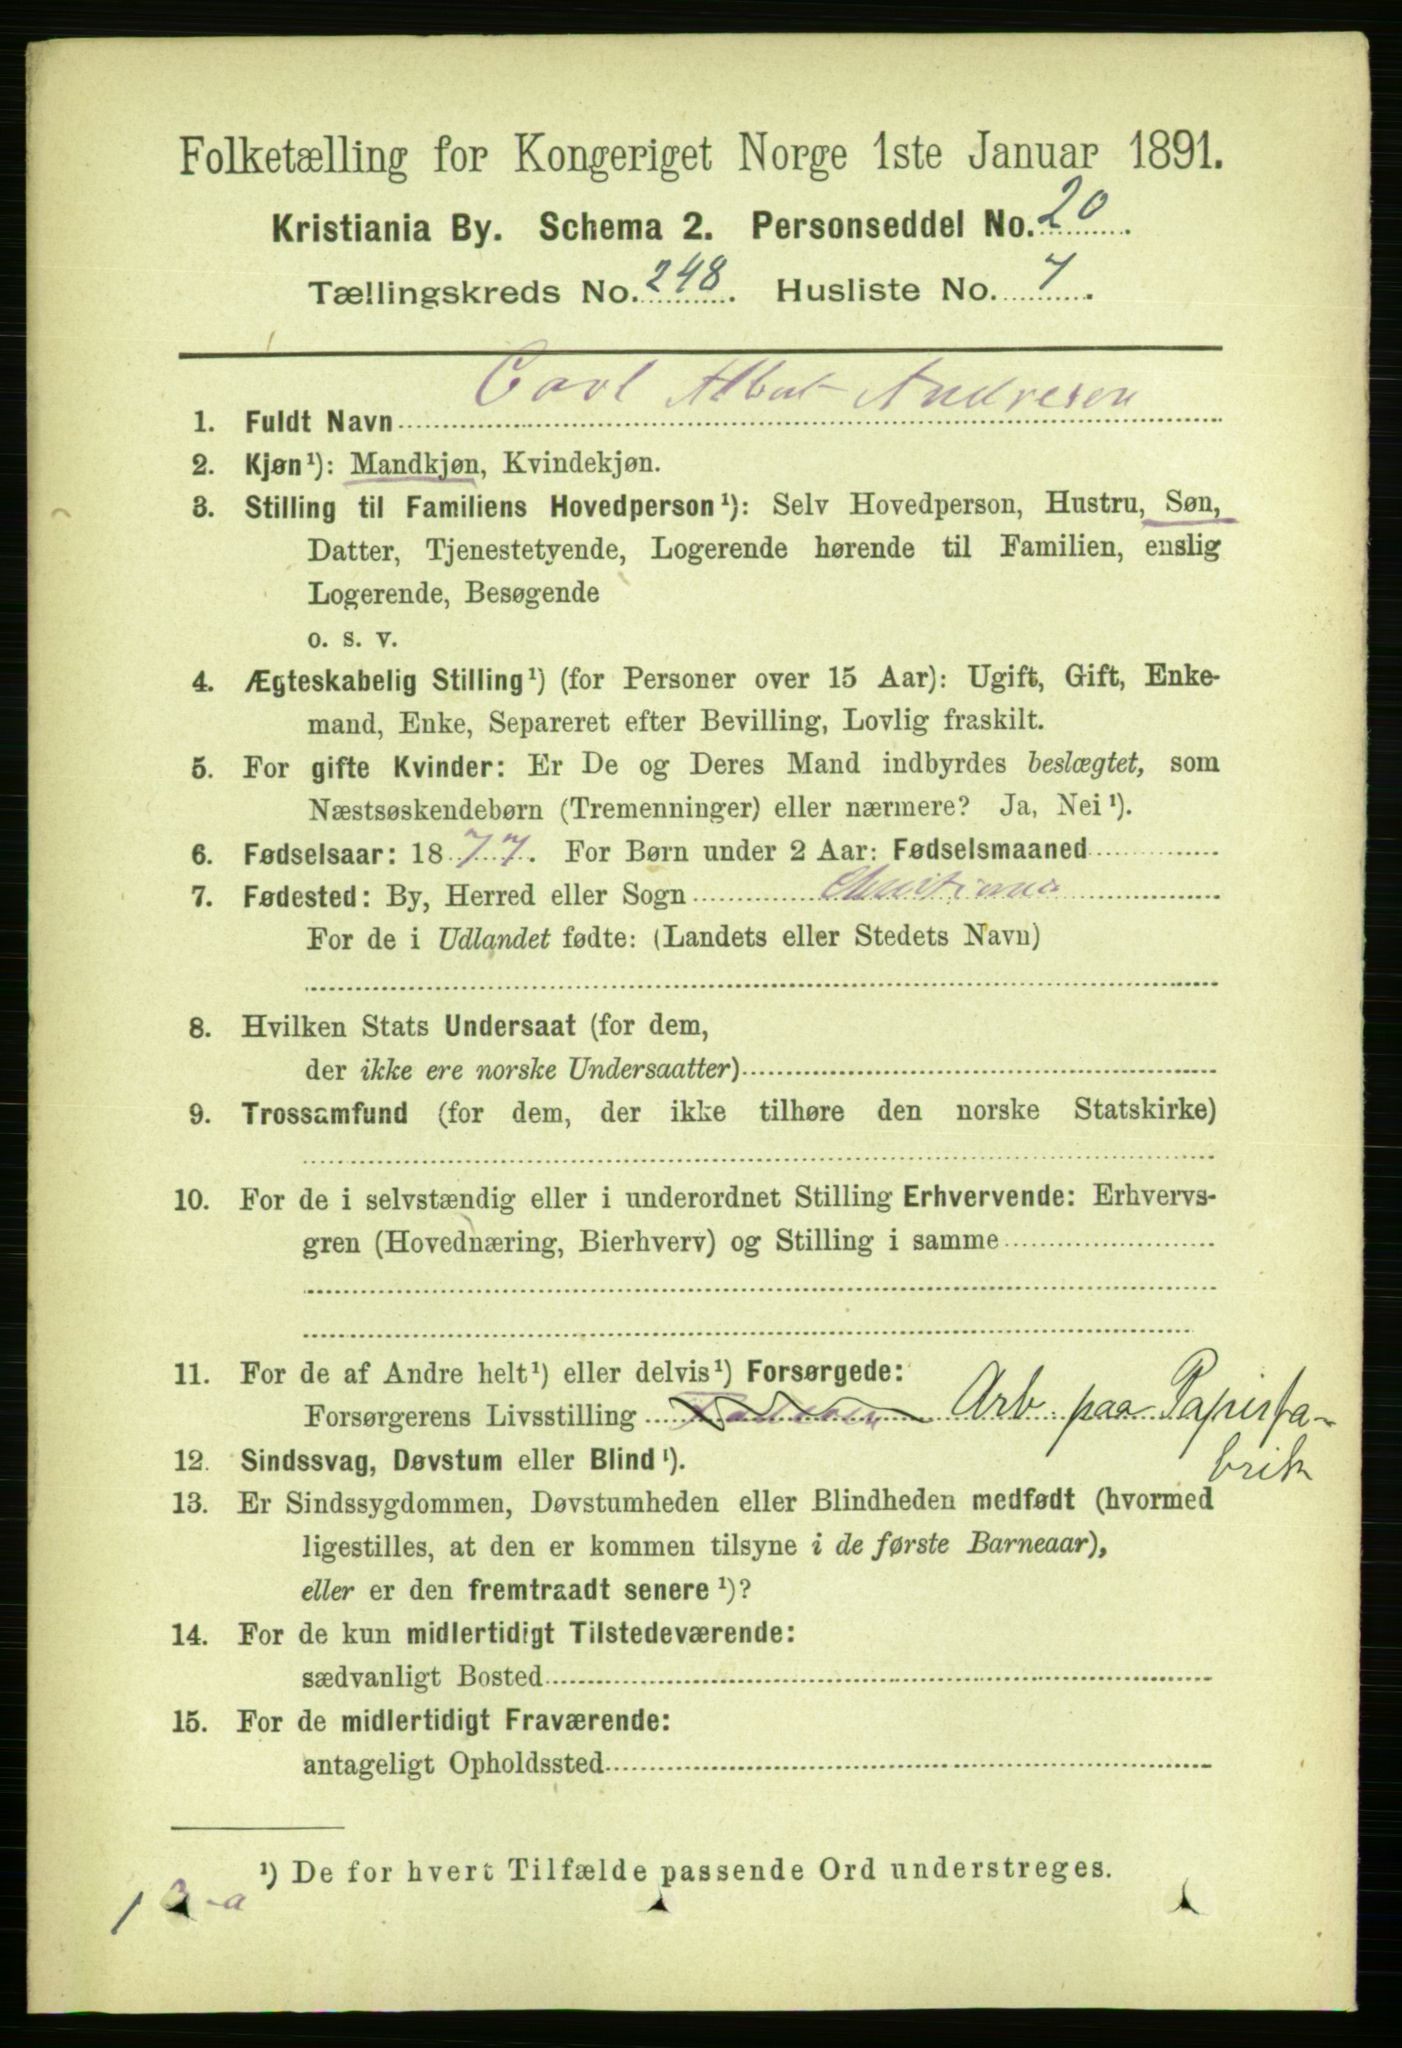 Folketælling for Kongeriget Norge 1ste Januar 1891.
Kristiania By. Schema 2. Personseddel No. 20.
Tællingskreds No. 248. Husliste No. 7.
1. Fuldt Navn Carl Albert Andresen
2. Kjøn¹): Mandkjøn, Kvindekjøn.
3. Stilling til Familiens Hovedperson¹): Selv Hovedperson, Hustru, Søn,
Datter, Tjenestetyende, Logerende hørende til Familien, enslig
Logerende, Besøgende
o. s. v.
4. Ægteskabelig Stilling¹) (for Personer over 15 Aar): Ugift, Gift, Enke-
mand, Enke, Separeret efter Bevilling, Lovlig fraskilt.
5. For gifte Kvinder: Er De og Deres Mand indbyrdes beslægtet, som
Næstsøskendebørn (Tremenninger) eller nærmere? Ja, Nei¹).
6. Fødselsaar: 1877. For Børn under 2 Aar: Fødselsmaaned
7. Fødested: By, Herred eller Sogn Christiania
For de i Udlandet fødte: (Landets eller Stedets Navn)
8. Hvilken Stats Undersaat (for dem,
der ikke ere norske Undersaatter)
9. Trossamfund (for dem, der ikke tilhøre den norske Statskirke)
10. For de i selvstændig eller i underordnet Stilling Erhvervende: Erhvervs-
gren (Hovednæring, Bierhverv) og Stilling i samme
11. For de af Andre helt¹) eller delvis¹) Forsørgede:
Forsørgerens Livsstilling Arb. paa Papirfa-
brik
12. Sindssvag, Døvstum eller Blind¹).
13. Er Sindssygdommen, Døvstumheden eller Blindheden medfødt (hvormed
ligestilles, at den er kommen tilsyne i de første Barneaar),
eller er den fremtraadt senere¹)?
14. For de kun midlertidigt Tilstedeværende:
sædvanligt Bosted
15. For de midlertidigt Fraværende:
antageligt Opholdssted
¹) De for hvert Tilfælde passende Ord understreges.